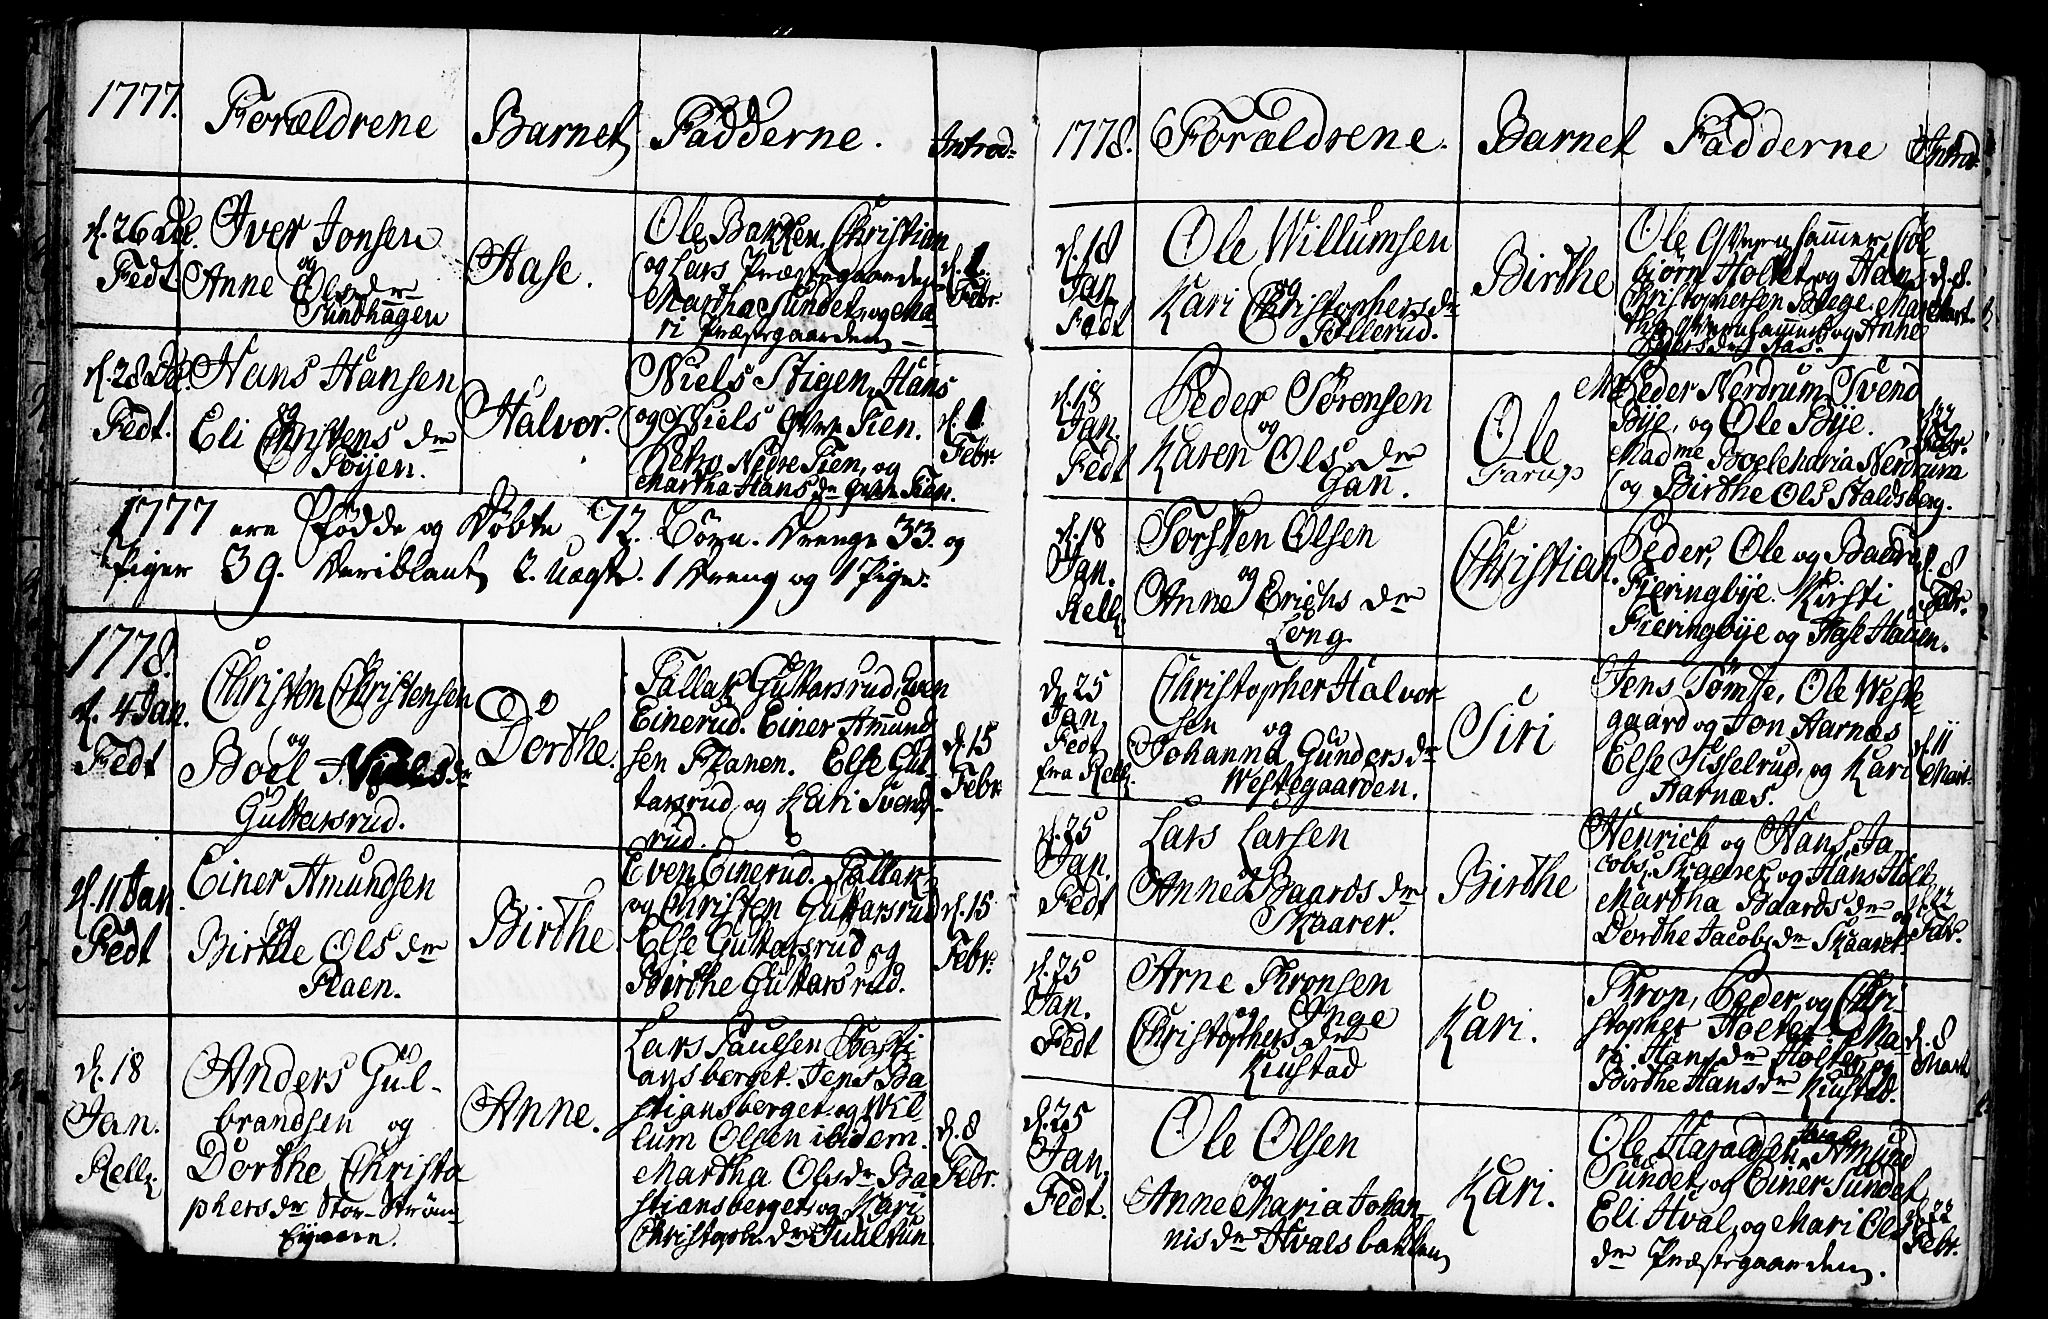 1777.
Forældrene
Barnet
Fadderne.
Introd:
d. 26 Dec.
Fedt
Iver Jonsen
og
Anne Olsdr
Sundhagen
Aase.
Ole Bakken, Christian
og Lars Præstegaarden
Martha Sundet, og Ma-
ri Præstegaarden
d. 1.
Febr.
d. 28 Dec.
Fedt.
Hans Hansen
og
Eli Christensdr
Toijen.
Halvor.
Niels Stigen, Hans
og Niels Øvre Tien.
Nedre Tien, og
Martha Hansdr Øvre Tien.
d. 1
Febr.
1777 ere Fødde og Døbte 72. Børn. Drenge 33. og
Piger 39. Deriblant 2. uægte. 1 Dreng og 1 Pige.
1778.
d. 4 Jan.
Fedt
Christen Christensen
og
Boel Nielsdr
Guttarsrud.
Dorthe.
Tallak Guttarsrud, Even
Einerud. Einer Amund
sen Flaaen. Else Gut-
tarsrud og Kari Svends-
rud.
d. 15
Febr.
d. 11 Jan.
Fedt
Einer Amundsen
og
Birthe Olsdr
Flaen.
Birthe
Even Einerud. Tallak
og Christen Guttarsrud
Else Guttarsrud og
Birthe Guttarsrud.
d. 15
Febr.
d. 18
Jan.
Rell.
Anders Gul-
brandsen og
Dorthe Christo
phersdr Stor-Strøm-
Eyeren.
Anne.
Lars Paulsen Basti
ansberget. Jens Ba
stiansberget og Wil
lum Olsen ibidem.
Martha Olsdr Ba
stiansberget, og Kari
Christophr.dr Juultun
d. 8
Febr.
1778.
Forældrene.
Barnet
Fadderne
Introd.
d. 18
Jan.
Fedt
Ole Willumsen
og
Kari Christophersdr
Tollerud.
Birthe
Ole Qvernhammer, Col
bjørn Holtet, og Hans
Christophersen Berge. Mar
the Qvernhammer og Anne
Aas.
d. 8.
Mart.
d. 18
Jan.
Fedt
Peder Sørensen
og
Karen Olsdr
Gan.
Ole
Farup
Mr Peder Nerdrum, Svend
Bije, og Ole Bije.
Madme Boel Maria Nerdrum
og Birthe Ols Staldsberg.
d. 22
Febr.
d. 18
Jan.
Rell.
Torsten Olsen
og
Anne Erichsdr
Long
Christian.
Peder, Ole og Baard
Fieringbije. Kirsti
Fieringbije og Aase Hauen.
d. 8
Febr.
d. 25
Jan.
Fedt
fra Rell.
Christopher Halvor
sen og
Johanna Gundersdr
Westegaarden.
Siri
Jens Tømte, Ole Weste
gaard og Jon Harnæs
Else Sisselrud, og Kari
Harnæs.
d. 11
Mart.
d. 25
Jan.
Fedt
Lars Larsen
og
Anne Baardsdr
Skaarer.
Birthe
Henrich og Hans Ja
cobs. Skaarer og Hans Holt
Martha Baardsdr og
Dorthe Jacobsdr Skaarer
d. 22
Febr.
d. 25
Jan.
Fedt
Arne Thronsen
og Inge
Christophersdr
Kiustad
Kari.
Thron, Peder, og Chri-
stopher Holter. Ma-
ri Hansdr Holter og
Birthe Hansdr Kiustad.
d. 8
Mart
d. 25
Jan.
Fedt.
Ole Olsen
og
Anne Maria Johan
nisdr Hvalsbakken
Kari.
Ole Haraldsen Hval Amund
Sundet, og Einer Sundet
Eli Hval, og Mari Ols
dr Præstegaarden.
d. 22
Febr.